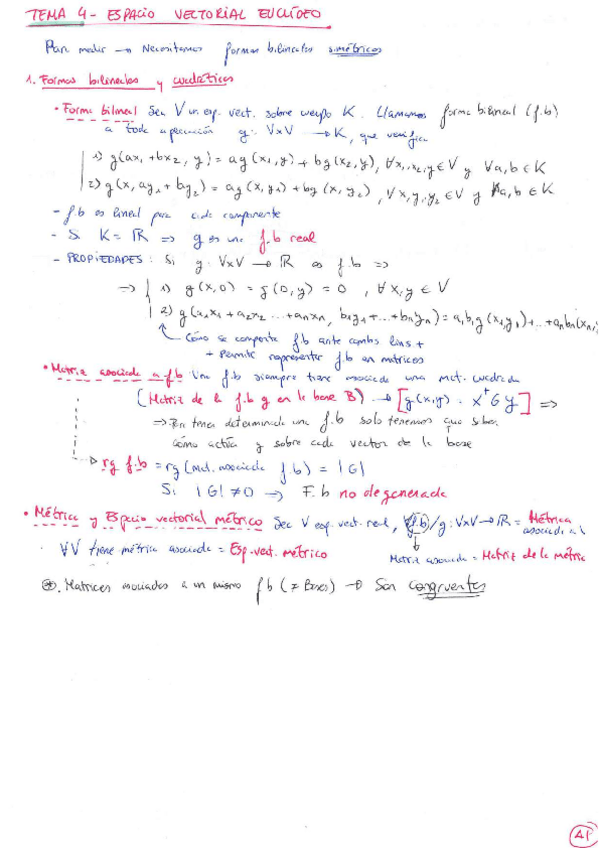 TEMA 4 - ESPACIO VECTORIAL EUCLÍDEO
Para medir → Necesitamos formas bilineales simétricas
1. Formas bilineales y cuadráticas
• Forma bilineal Sea V un esp. vect. sobre cuerpo K. Llamamos forma bilineal (f.b)
a toda aplicación g: VxV → K, que verifica
1) g(ax₁ + bx₂, y) = ag(x₁, y) + bg(x₂, y), ∀x₁, x₂, y ∈ V y ∀a, b ∈ K
2) g(x, ay₁ + by₂) = ag(x, y₁) + bg(x, y₂), ∀x, y₁, y₂ ∈ V y ∀a, b ∈ K
- f.b es lineal para cada componente
- Si K = ℝ ⇒ g es una f.b real
- PROPIEDADES: Si g: VxV → ℝ es f.b ⇒
⇒ 1) g(x, 0) = g(0, y) = 0, ∀x, y ∈ V
2) g(a₁x₁ + a₂x₂ ... + aₙxₙ, b₁y₁ + ... + bₙyₙ) = a₁b₁g(x₁, y₁) + ... + aₙbₙ(xₙ,
Cómo se comporta f.b ante combs lins +
+ Permite representar f.b en matrices
• Matriz asociada a f.b Una f.b siempre tiene asociada una mat. cuadrada
(Matriz de la f.b g en la base B) → [g(x,y) = XᵗGY] ⇒
⇒ Para tener determinada una f.b solo tenemos que saber
cómo actúa g sobre cada vector de la base
→ rg f.b = rg (mat. asociada f.b) = |G|
Si |G| ≠ 0 ⇒ F.b no degenerada
• Métrica y Espacio vectorial métrico Sea V esp. vect. real, f.b / g: VxV → ℝ = Métrica
asociada a
∀V tiene métrica asociada = Esp. vect. métrico
Matriz asociada = Matriz de la métrica
⊛. Matrices asociadas a un mismo f.b (≠ Bases) → Son congruentes
A1